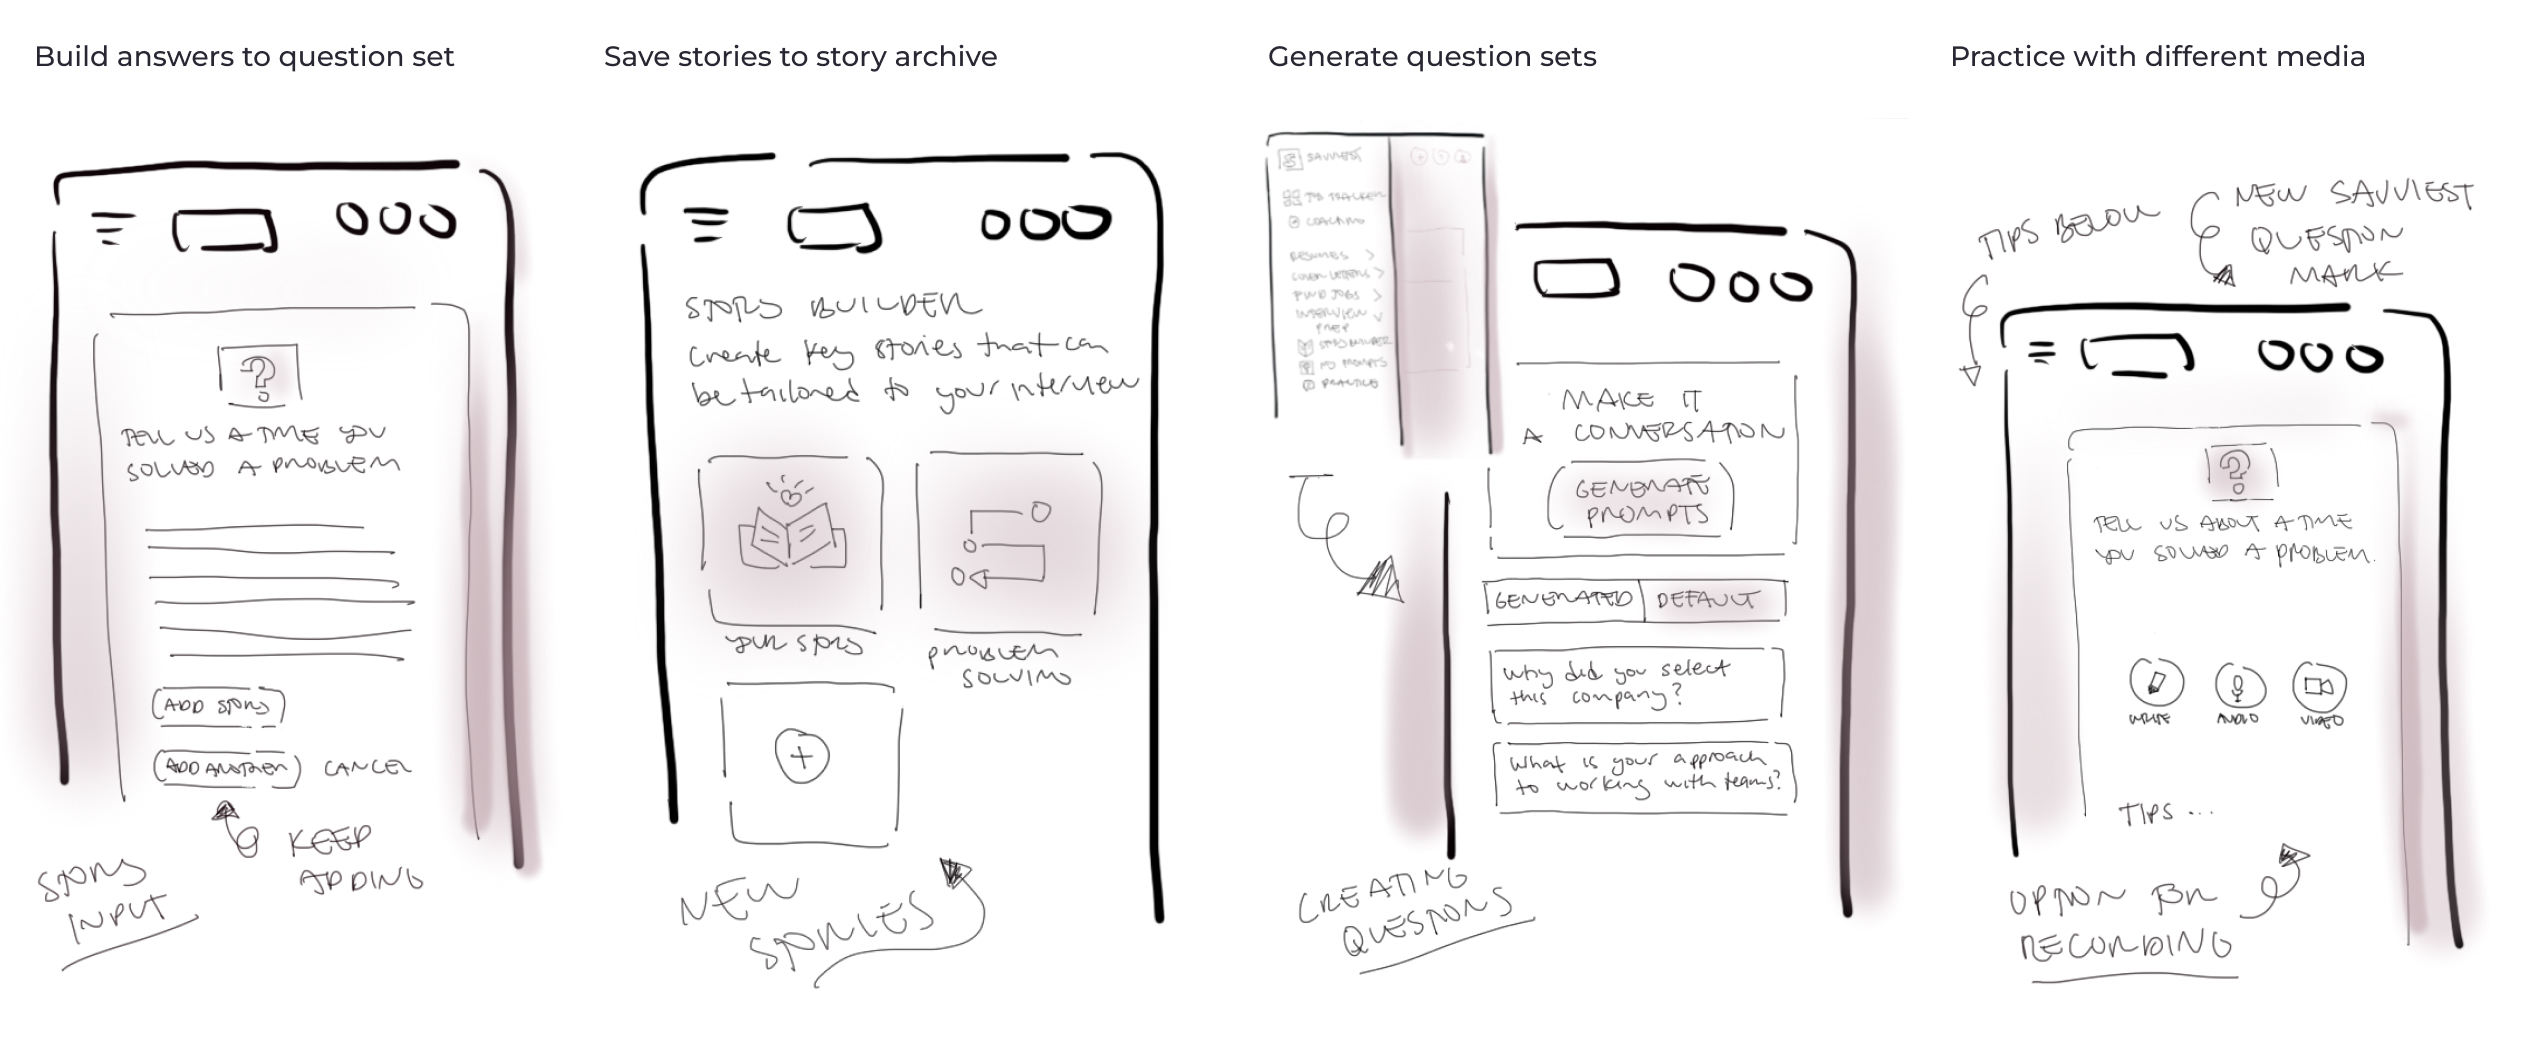 Build answers to question set
TELL US A TIME YOU
SOLVED A PROBLEM
ADD STORY
ADD ANOTHER CANCEL
KEEP
ADDING
STORY
INPUT
Save stories to story archive
STORY BUILDER
Create key stories that can
be tailored to your interview
YOUR STORY
PROBLEM
SOLVING
NEW
STORIES
Generate question sets
SAVVIEST
JOB TRACKER
COACHING
RESUMES
COVER LETTERS
FIND JOBS
INTERVIEW
PREP
STORY BUILDER
MY PROMPTS
PRACTICE
MAKE IT
A CONVERSATION
GENERATE
PROMPTS
GENERATED DEFAULT
Why did you select
this company?
What is your approach
to working with teams?
CREATING
QUESTIONS
Practice with different media
TIPS BELOW
NEW SAVVIEST
QUESTION
MARK
TELL US ABOUT A TIME
YOU SOLVED A PROBLEM.
WRITE AUDIO VIDEO
TIPS ...
OPTION FOR
RECORDING